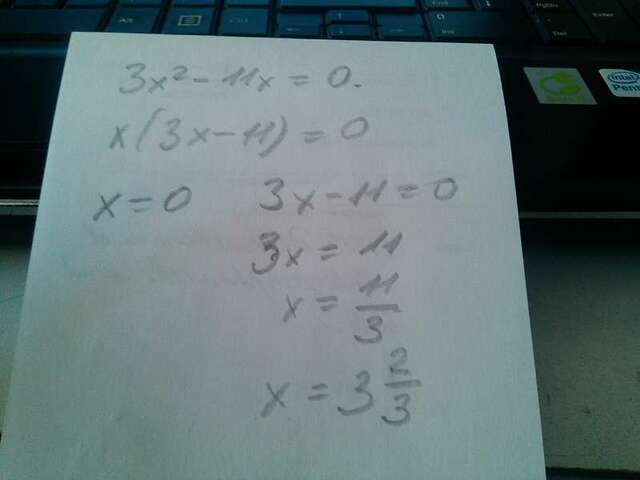 3x² - 11x = 0.
x(3x - 11) = 0
x = 0    3x - 11 = 0
3x = 11
x = 11/3
x = 3 2/3
End
PgDn
Enter
Ctrl
Del
0
Ins
intel
Pent